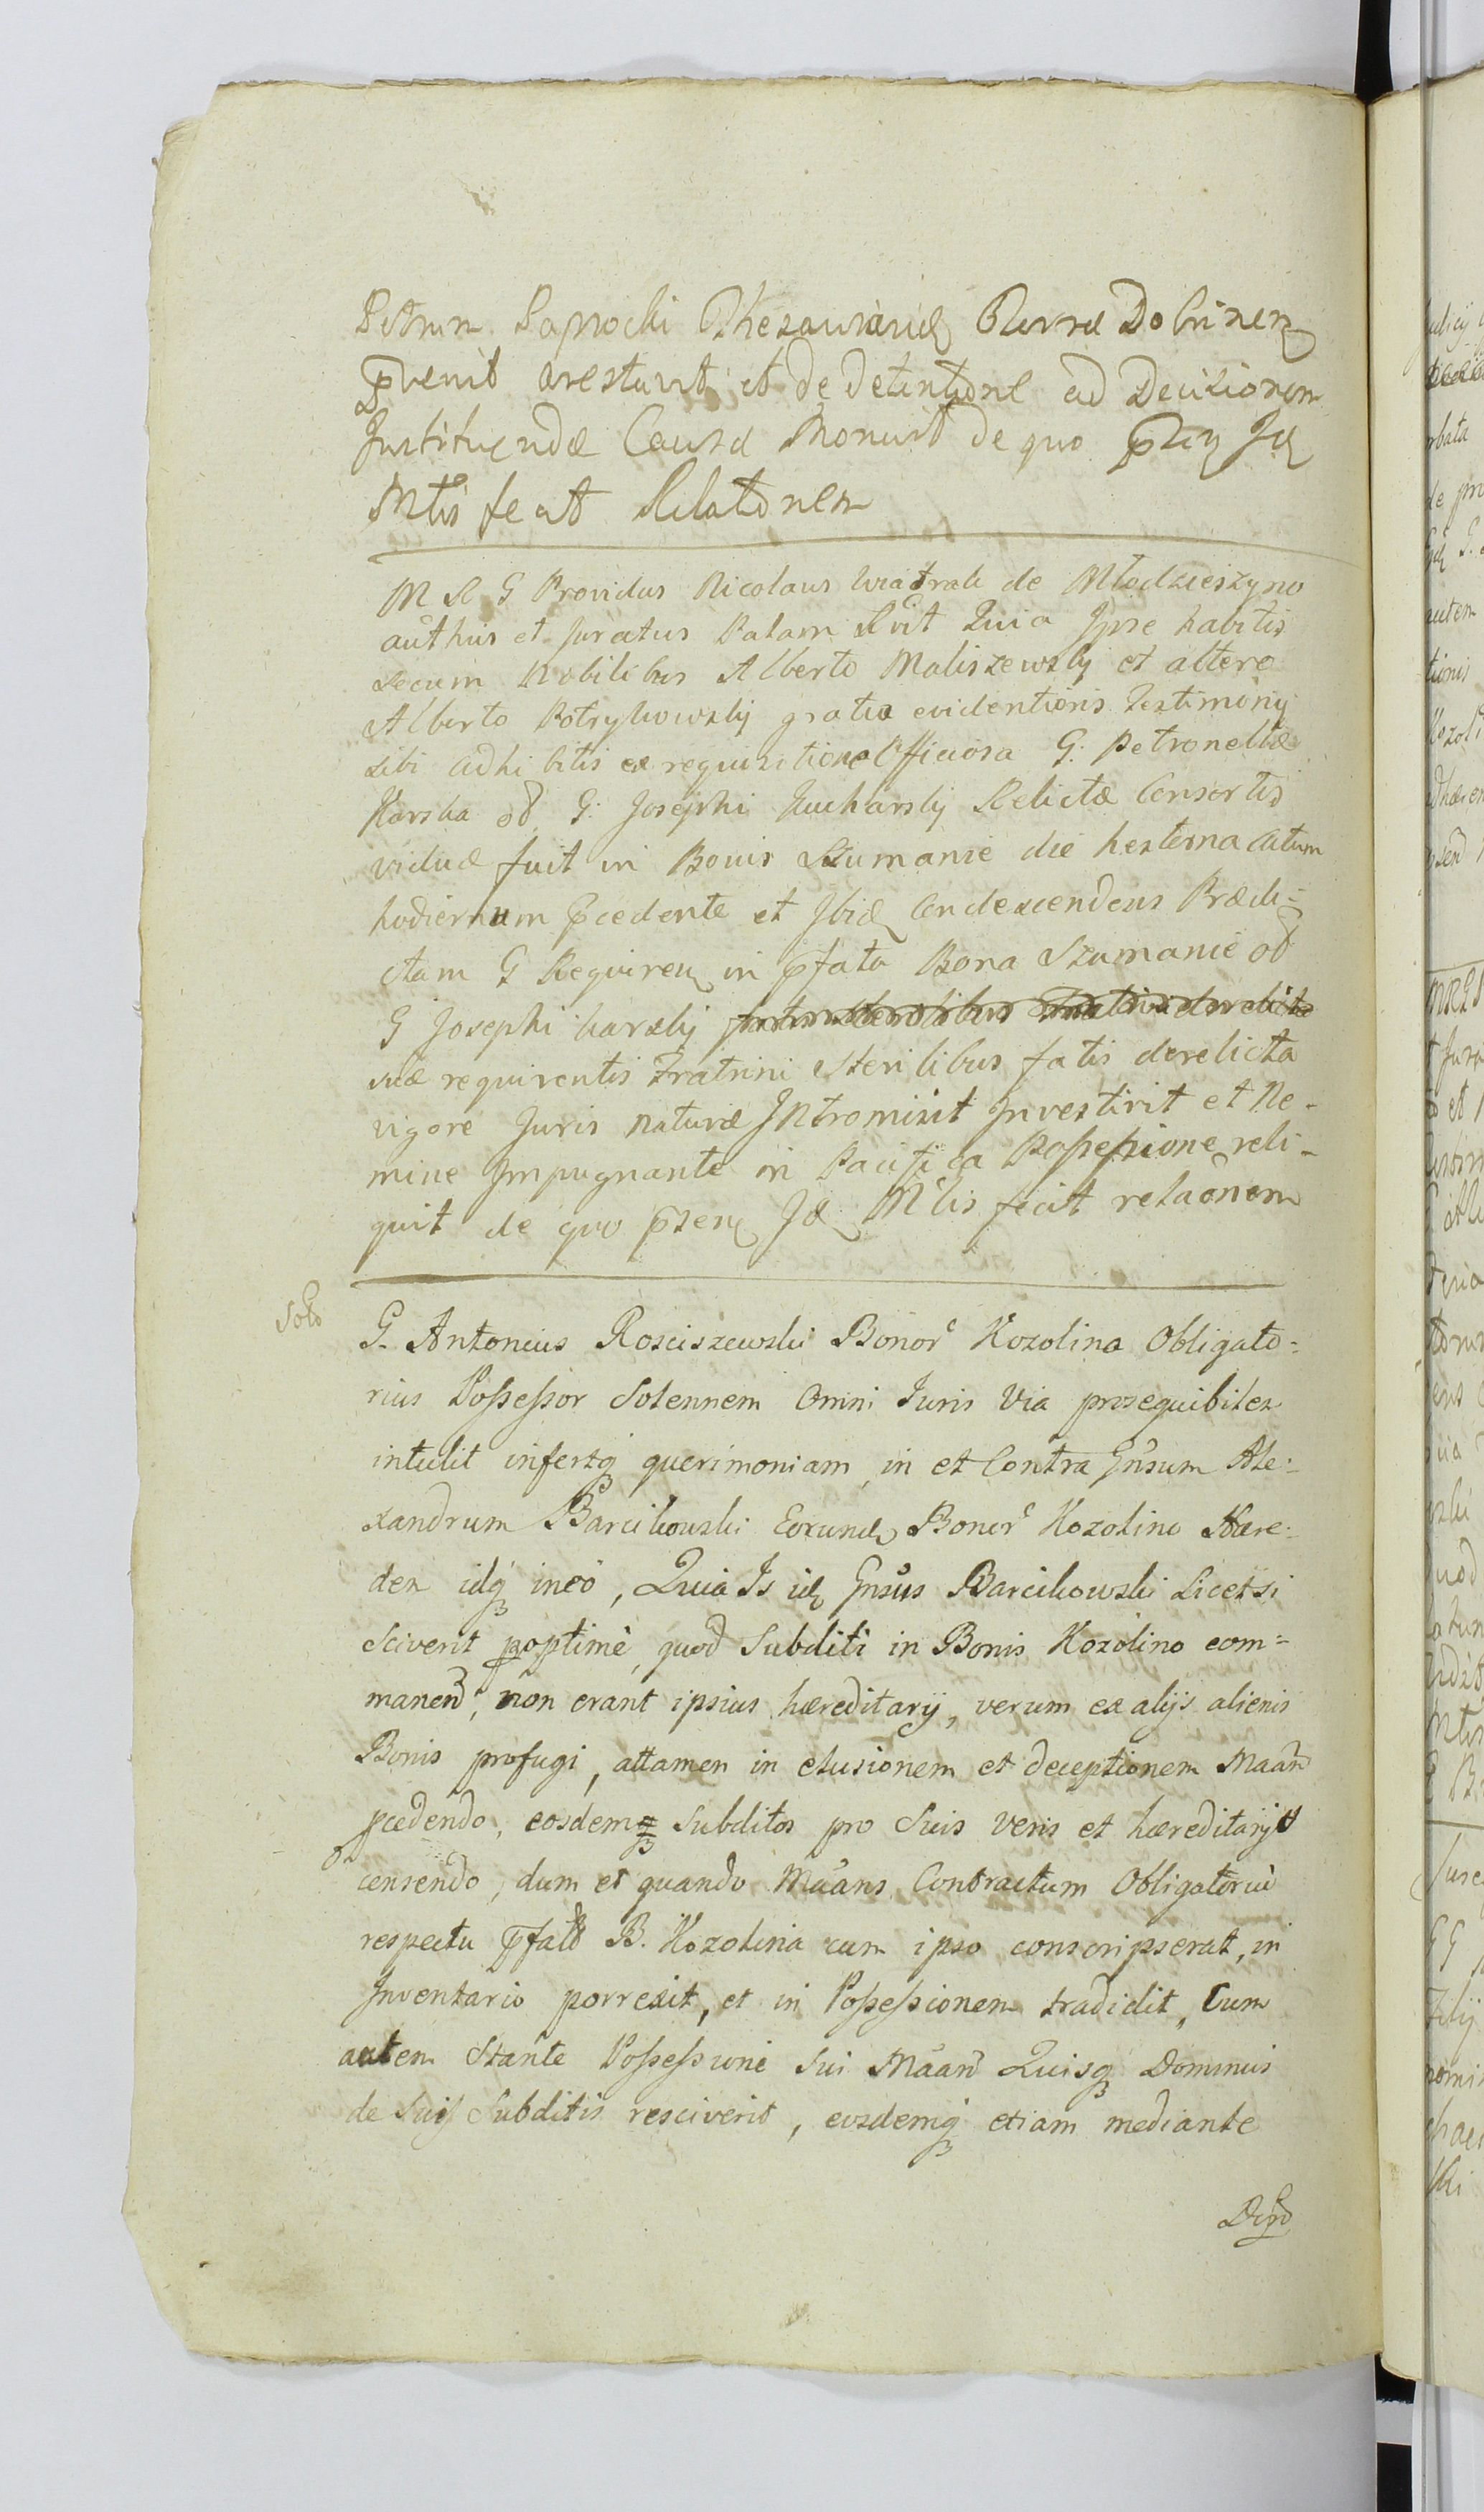 Petrum Paprocki Thesaurarid Terræ Dobrinen
pvenit arestavit et de detentione ad Decisionem
Instituendæ Causæ Monuit de quo pns Id
Mtis fecit Relatonem
M R G Providus Nicolaus Wiatrak de Młodzieszyno
authus et Juratus Palam Rvit Quia Ipse habitis
secum Nobilibus Alberto Maliszewsky et altero
Alberto Potrykowsky gratia evidentioris Testimonij
sibi adhibitis ex requisitione Officiosa G: Petronellæ
Karska od G: Josephi Kucharsky Relictæ Consortis
viduæ fuit in Bonis Szumanie die hesterna actum
hodiernum pcedente et Ibid Condescendens Prædi-
ctam G Requiren in pfata Bona Szumanie od
G Josephi Karsky
suæ requirentis Fratrini sterilibus fatis derelicta
vigore Juris naturæ Intromisit Investivit et Ne-
mine Impugnante in Pacifica Possessione reli-
quit de quo psens Id Mtis fecit relaonem
G. Antonius Rosciszewski Bonor Kozolina Obligato=
rius Possessor Solennem Omni Iuris Via prosequibilem
intulit infertq querimoniam in et Contra Gnsum Ale:
xandrum Barcikowski Eorund Bonor Kozolino Hære:
dem idq ineo, Quia Is id Gnsus Barcikowski Licetsi
sciverit poptimè, quod Subditi in Bonis Kozolino com=
manen, non erant ipsius hæreditarij, verum ex alijs alienis
Bonis profugi, attamen in elusionem et deceptionem Maan
pcedendo, eosdemq Subditos pro Suis veris et hæreditarijs
censendo, dum et quando Maans Contractum Obligatoriu
respectu pfat B. Kozolina cum ipso conscripserat, in
Inventario porrexit, et in Possessionem tradidit, Cum
autem Stante Possessione Sui Maan Quisq Dominus
de Suis Subditis resciverit, eosdemq etiam mediante